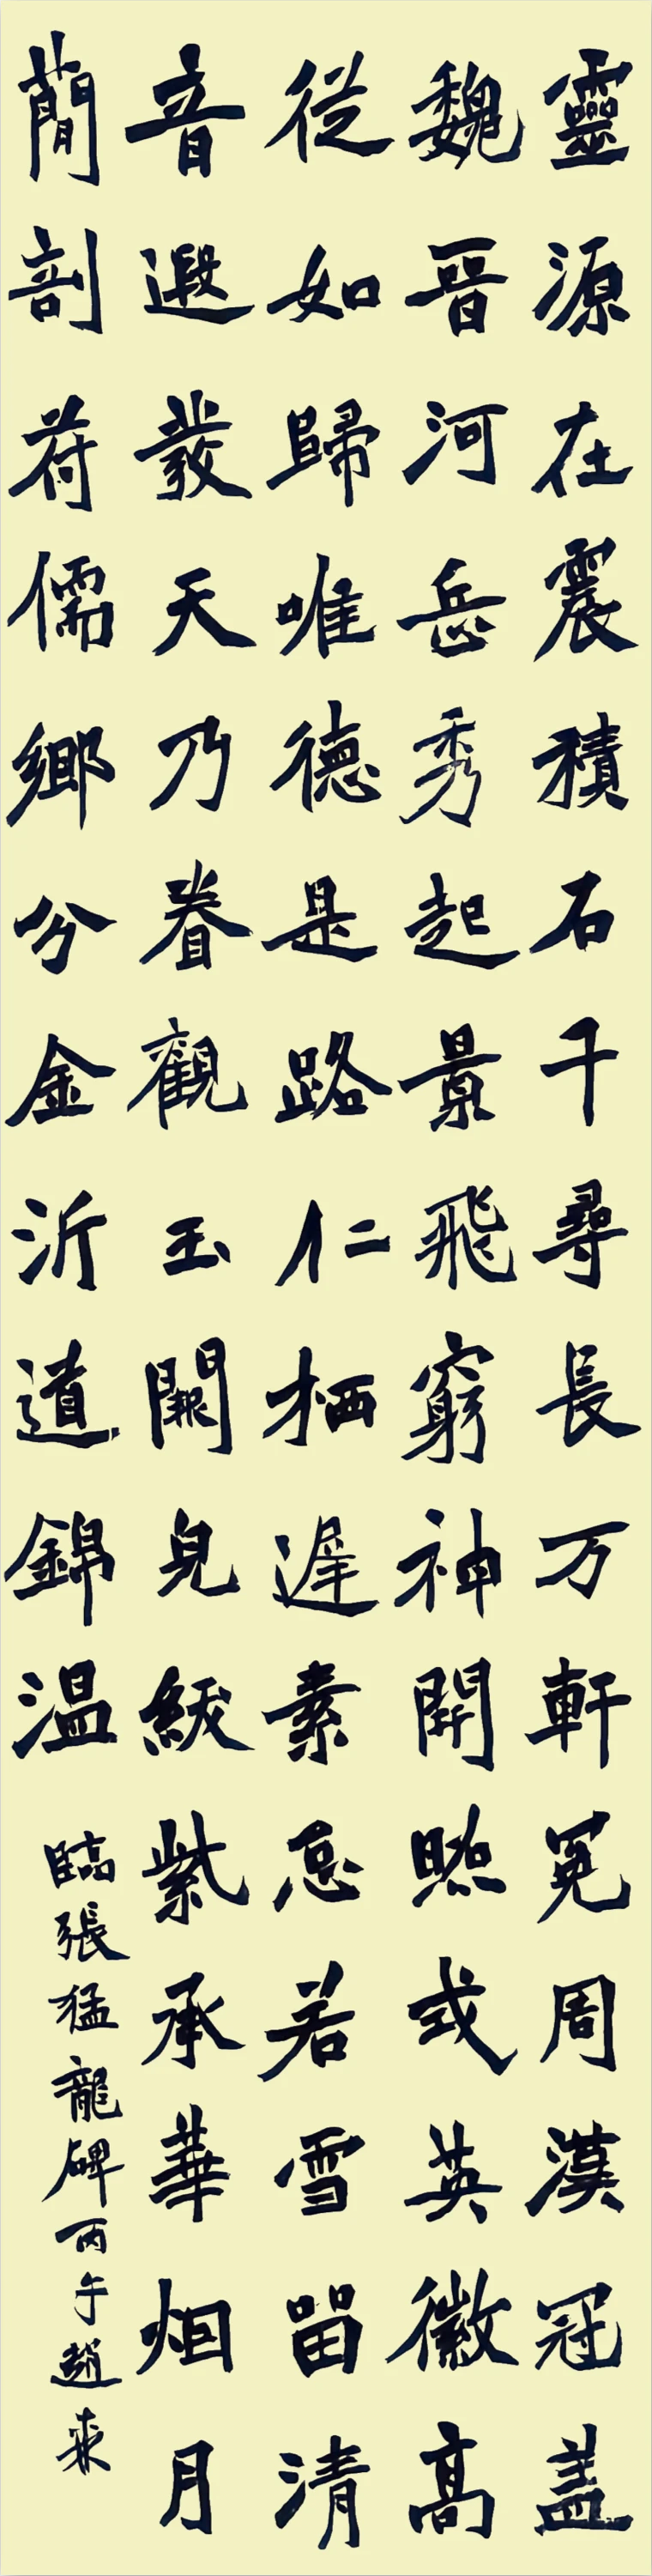 靈源在震積石千尋長万軒冕周漢冠盖
魏晉河岳秀起景飛窮神開照式英徽高
從如歸唯德是路仁栖遲素若雪留清
音遐發天乃眷觀玉闕皃紱紫承華烟月
蕳剖苻儒鄉分金沂道錦温
臨張猛龍碑丙午趙來